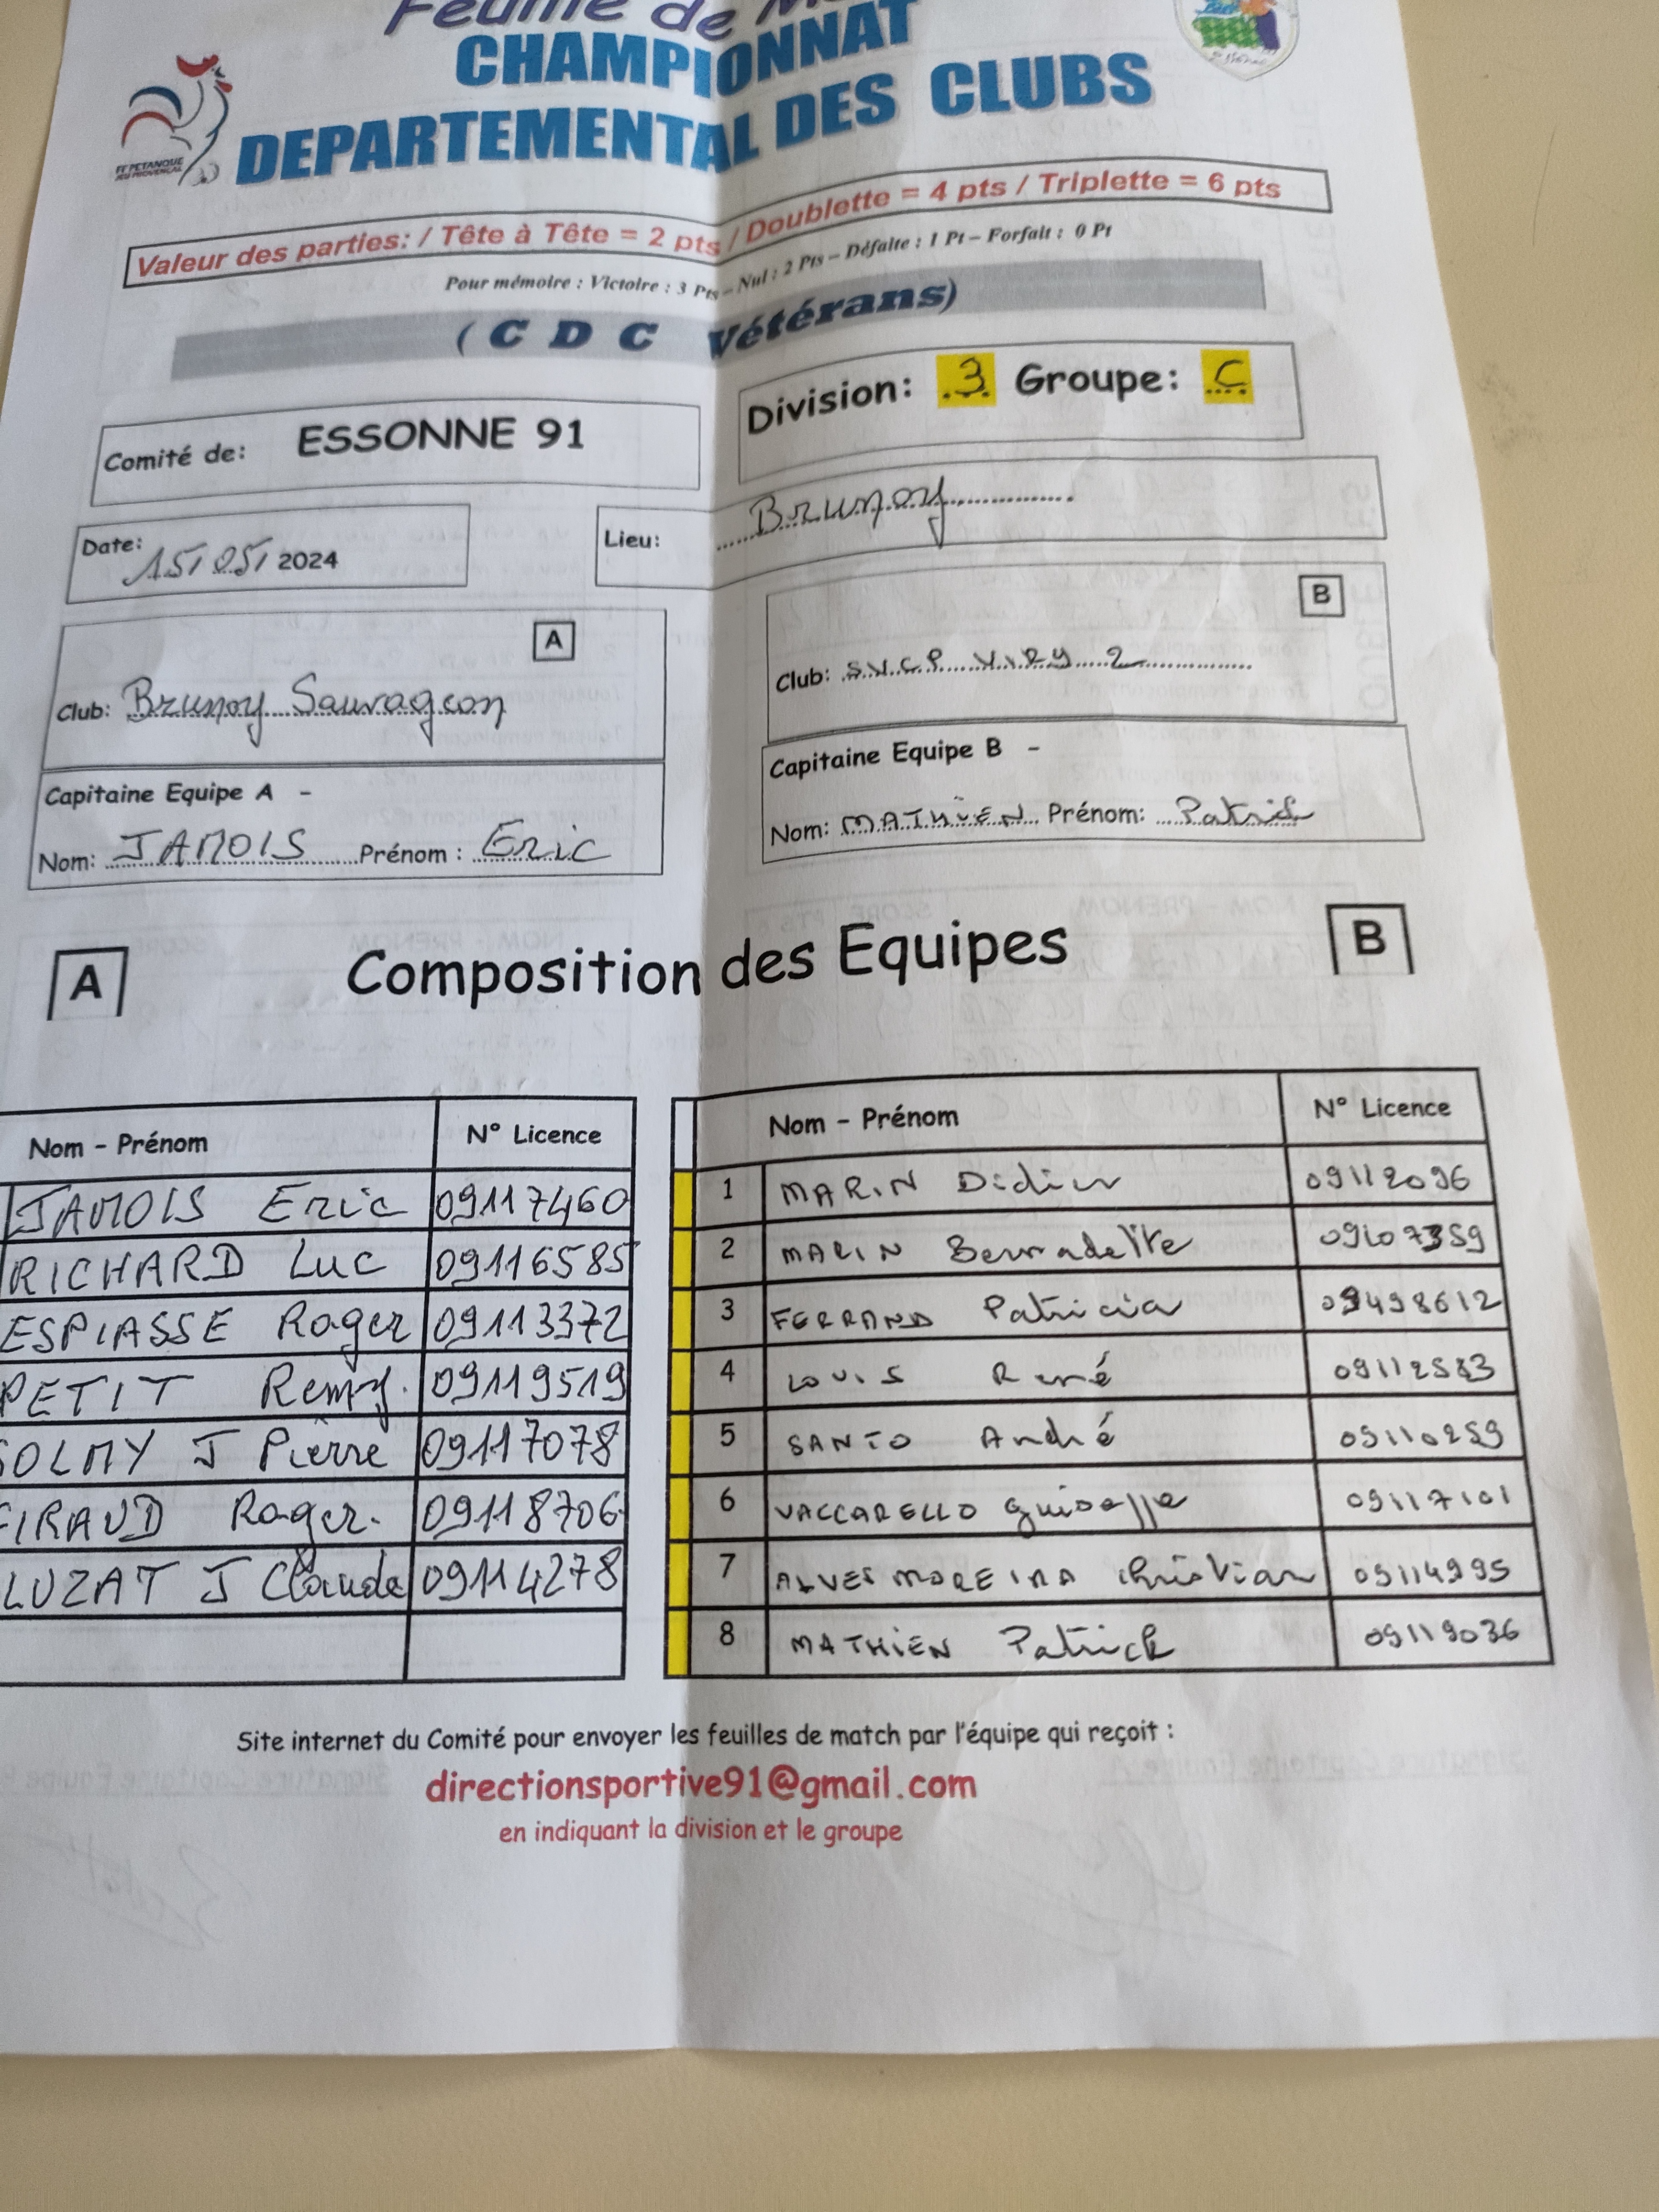 Feuille de M
CHAMPIONNAT
DEPARTEMENTAL DES CLUBS
FF PETANQUE
JEU PROVENCAL
Valeur des parties: / Tête à Tête = 2 pts / Doublette = 4 pts / Triplette = 6 pts
Pour mémoire : Victoire : 3 Pts – Nul : 2 Pts – Défaite : 1 Pt – Forfait : 0 Pt
( C D C Vétérans)
Division: 3 Groupe: C
Comité de: ESSONNE 91
Date: 15/05/2024
Lieu: Brunoy
A
Club: Brunoy Sauvageon
B
Club: S.V.C.P VIRY 2
Capitaine Equipe A -
Nom: JAMOIS Prénom : Eric
Capitaine Equipe B -
Nom: MATHIEN Prénom: Patrick
A Composition des Equipes B
Nom - Prénom N° Licence
JAMOIS Eric 09117460
RICHARD Luc 09116585
ESPIASSE Roger 09113372
PETIT Remy. 09119519
OLMY J Pierre 09117078
IRAUD Roger. 09118706
LUZAT J Claude 09114278
Nom - Prénom N° Licence
1 MARIN Didier 09112096
2 MARIN Bernadette
3 FERRAND Patricia 09498612
4 LOUIS René
5 SANTO André 09110259
6 VACCARELLO Guiseppe 09117101
7 ALVES MOREIRA Christian 09114995
8 MATHIEN Patrick 09119036
Site internet du Comité pour envoyer les feuilles de match par l'équipe qui reçoit :
directionsportive91@gmail.com
en indiquant la division et le groupe